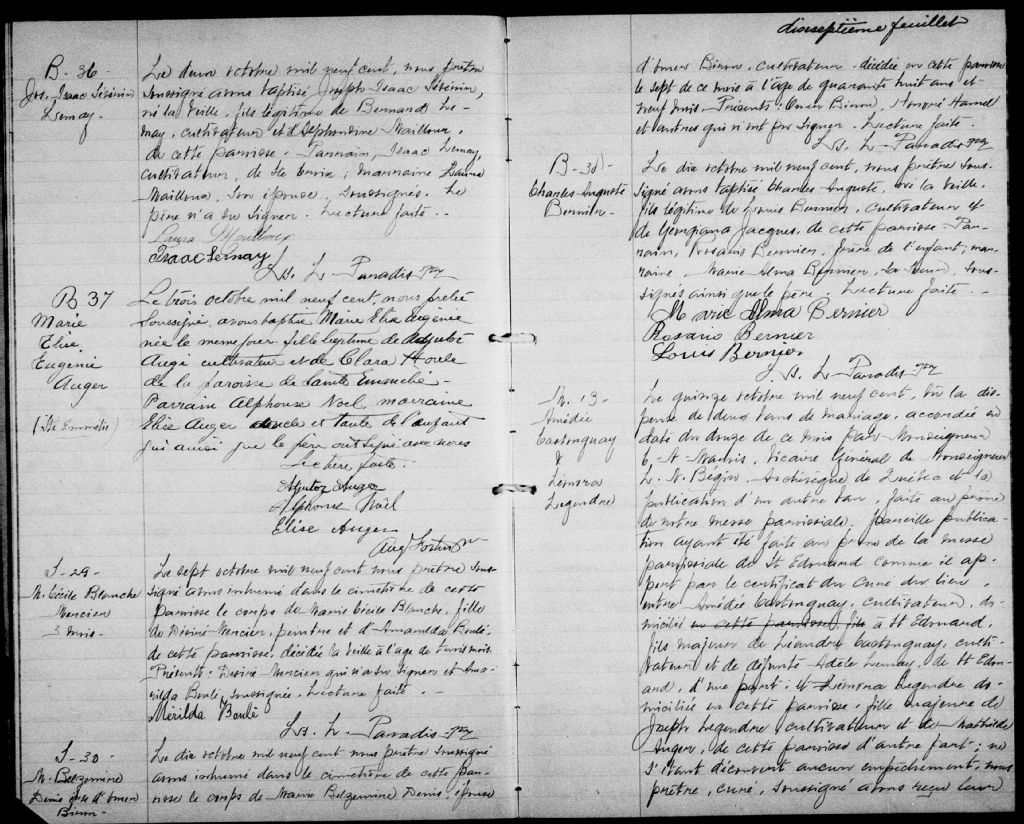 B - 36 -
Jos. Isaac Sévérin
Lemay -
Le deux octobre mil neuf cent, nous prêtre
soussigné avons baptisé Joseph Isaac Sévérin,
né la veille, fils légitime de Bernard Le-
may, cultivateur et d'Alphonsine Mailloux,
de cette paroisse - Parrain, Isaac Lemay,
cultivateur, de Ste Croix; marraine Laura
Mailloux, son épouse, soussignés. Le
père n'a su signer. Lecture faite . -
Laura Mailloux
Isaac Lemay
Ls. L. Paradis Ptre
B 37
Marie
Elise
Eugénie
Auger
(Ste Emmélie)
Le trois octobre mil neuf cent, nous prêtre
soussigné, avons baptisé Marie Elise Eugénie
née le même jour fille légitime de Adjutor
Augé cultivateur et de Clara Houle
de la paroisse de Sainte Emmélie -
Parrain Alphonse Noel marraine
Elise Auger oncle et tante de l'enfant
qui ainsi que le père ont signé avec nous
Lecture faite.
Adjutor Auger
Alphonse Noël
Elise Auger
Aug. Fortier
S - 29 -
M. Cécile Blanche
Mercier
3 mois -
Le sept octobre mil neuf cent nous prêtre sous-
signé avons inhumé dans le cimetière de cette
paroisse le corps de Marie Cécile Blanche, fille
de Désiré Mercier, peintre et d'Amarilda Boulé,
de cette paroisse, décédée la veille à l'âge de trois mois.
Présents: Désiré Mercier qui n'a su signer et Ama-
rilda Boulé, soussignée. Lecture faite. -
Mérilda Boulé
Ls. L. Paradis Ptre
S - 30 -
M. Belzemine
Denis épse d'Omer
Biron -
Le dix octobre mil neuf cent nous prêtre soussigné
avons inhumé dans le cimetière de cette pa-
roisse le corps de Marie Belzemine Denis, épouse
dixseptième feuillet
d'Omer Biron, cultivateur, décédée en cette paroisse
le sept de ce mois à l'âge de quarante huit ans et
neuf mois. Présents: Omer Biron, Honoré Hamel
et autres qui n'ont pu signer. Lecture faite.
Ls. L. Paradis Ptre
B - 38 -
Charles Auguste
Bernier -
Le dix octobre mil neuf cent, nous prêtre sous-
signé avons baptisé Charles Auguste, né la veille,
fils légitime de Louis Bernier, cultivateur et
de Georgiana Jacques, de cette paroisse. Par-
rain, Rosario Bernier, frère de l'enfant; mar-
raine, Marie Alma Bernier, sa soeur, sous-
signés ainsi que le père. Lecture faite. -
Marie Alma Bernier
Rosario Bernier
Louis Bernier
Ls. L. Paradis Ptre
M. 13 -
Amédée
Castonguay
&
Lémora
Legendre
Le quinze octobre mil neuf cent, vu la dis-
pense de deux bans de mariage, accordée en
date du douze de ce mois par Monseigneur
C. A. Marois, Vicaire Général de Monseigneur
L. N. Bégin, Archevêque de Québec et la
publication d'un autre ban, faite au prône
de notre messe paroissiale, pareille publica-
tion ayant été faite au prône de la messe
paroissiale de St Edmond comme il ap-
pert par le certificat du curé du lieu,
entre Amédée Castonguay, cultivateur, do-
micilié en cette paroisse, fils à St Edmond,
fils majeur de Léandre Castonguay, culti-
vateur et de défunte Adèle Lemay, de St Edm-
ond, d'une part; et Lémora Legendre do-
miciliée en cette paroisse, fille majeure de
Joseph Legendre, cultivateur et de Mathilde
Auger, de cette paroisse d'autre part; ne
s'étant découvert aucun empêchement, nous
prêtre, curé, soussigné avons reçu leur